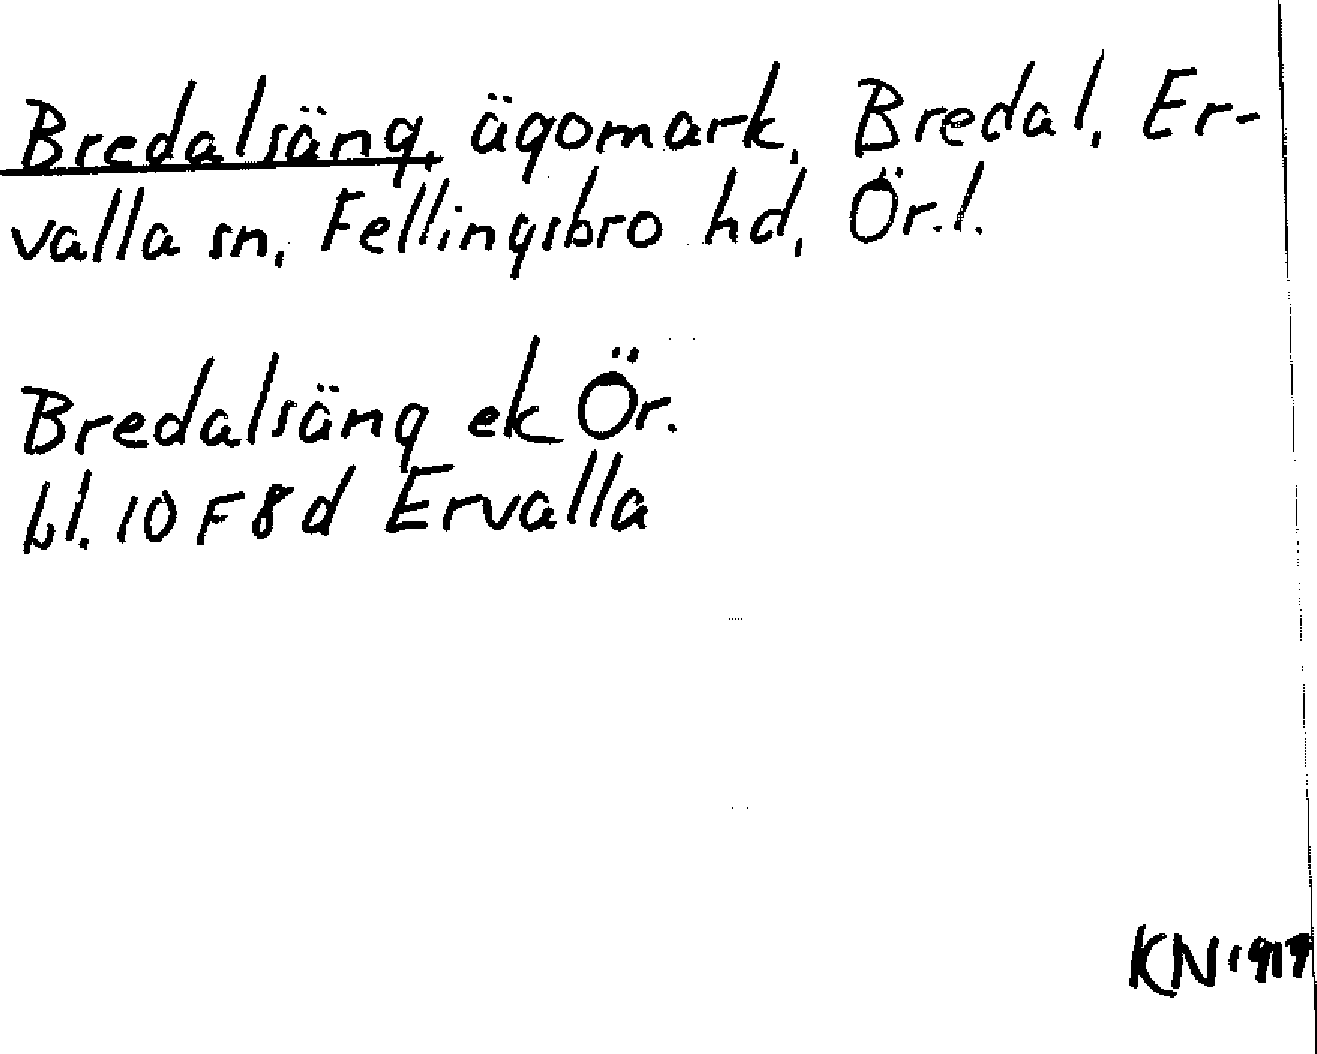 Bredalsäng, ägomark, Bredal, Er-
valla sn, Fellingsbro hd, Ör.l.
Bredalsäng ek Ör.
bl. 10 F 8 d Ervalla
KN